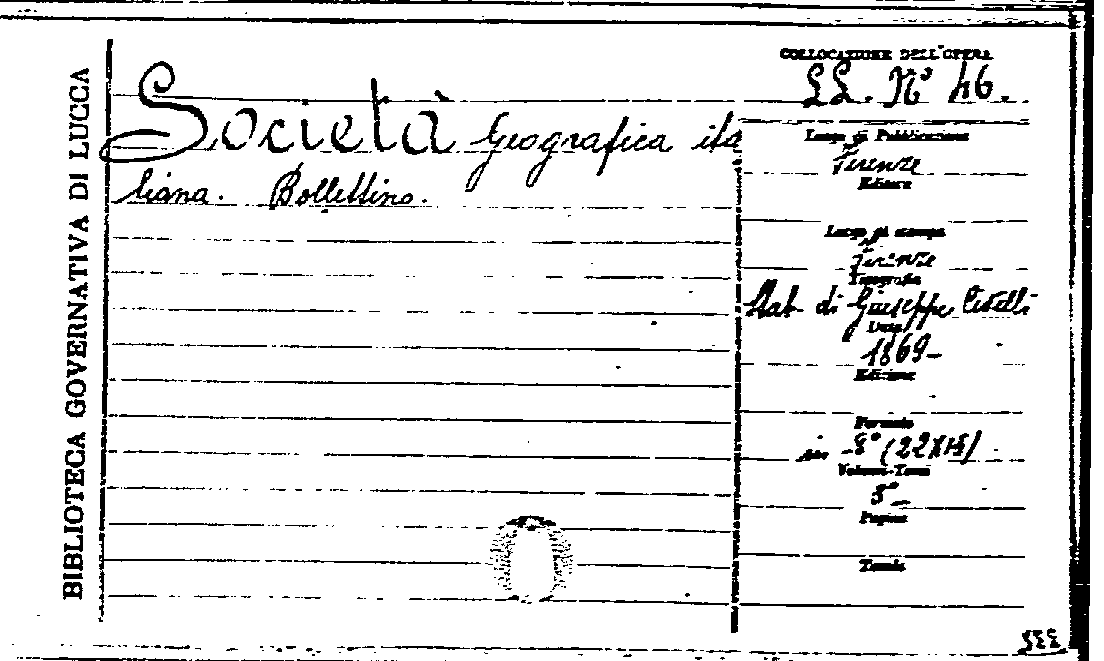 BIBLIOTECA GOVERNATIVA DI LUCCA
Società Geografica ita
liana. Bollettino.
COLLOCAZIONE DELL'OPERA
LL. N° 46.
Luogo di Pubblicazione
Firenze
Editore
Luogo di stampa
Firenze
Tipografia
Stab. di Giuseppe Civelli
Data
1869-
Edizione
Formato
in -8° (22X15)
Volumi-Tomi
3°
Pagine
Tavole